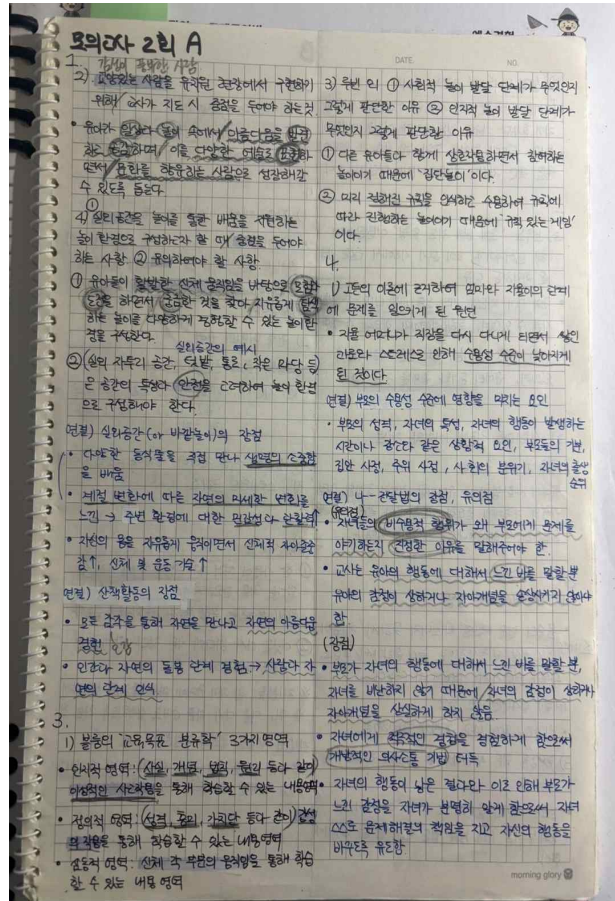 모의고사 2회 A
1. 감성이 풍부한 사람
2) 교양있는 사람을 유치원 현장에서 구현하기
위해 교사가 지도 시 중점을 두어야 하는 것
• 유아가 일상과 놀이 속에서 아름다움을 발견
하고 존중하며 이를 다양한 예술로 표현하
면서 문화를 향유하는 사람으로 성장해갈
수 있도록 돕는다.
4) 실외공간을 놀이를 통한 배움을 지원하는
놀이 환경으로 구성하고자 할 때 ① 중점을 두어야
하는 사항 ② 유의하여야 할 사항
① 유아들이 활발한 신체 움직임을 바탕으로 모험과
도전을 하면서 궁금한 것을 찾아 자유롭게 탐색
하는 놀이를 다양하게 경험할 수 있는 놀이환
경을 구성한다.
실외공간의 예시
② (실외 자투리 공간, 텃밭, 통로, 작은 마당 등)
은 공간의 특성과 안전을 고려하여 놀이 환경
으로 구성해야 한다.
연결) 실외공간 (or 바깥놀이)의 장점
• 다양한 동식물을 직접 만나 생명의 소중함
을 배움
• 계절 변화에 따른 자연의 미세한 변화를
느낌 → 주변 환경에 대한 민감성과 안정감↑
• 자신의 몸을 자유롭게 움직이면서 신체적 자아존중
감↑, 신체 및 운동 기술↑
연결) 산책활동의 장점
• 모든 감각을 통해 자연을 만나고 자연의 아름다움
경험
• 인간과 자연의 돌봄 관계 경험 → 사람과 자
연의 관계 인식
3.
1) 블룸의 '교육목표 분류학' 3가지 영역
• 인지적 영역: (사실, 개념, 법칙, 원리 등과 같이)
이성적인 사고작용을 통해 학습할 수 있는 내용영역
• 정의적 영역: (성격, 흥미, 가치관 등과 같이) 감정
의 작용을 통해 학습할 수 있는 내용영역
• 심동적 영역: 신체 각 부분의 움직임을 통해 학습
할 수 있는 내용 영역
DATE. NO.
3) 루빈 외 ① 사회적 놀이 발달 단계가 무엇인지
그렇게 판단한 이유 ② 인지적 놀이 발달 단계가
무엇인지 그렇게 판단한 이유
① 다른 유아들과 함께 상호작용하면서 참여하는
놀이이기 때문에 '집단놀이'이다.
② 미리 정해진 규칙을 인식하고 수용하여 규칙에
따라 진행하는 놀이이기 때문에 '규칙 있는 게임'
이다.
나.
1) 고든의 이론에 근거하여 엄마와 지율이의 관계
에 문제를 일으키게 된 원인
• 지율 어머니가 직장을 다시 다니게 되면서 쌓인
피로와 스트레스로 인해 수용성 수준이 낮아지게
된 것이다.
연결) 부모의 수용성 수준에 영향을 미치는 요인
• 부모의 성격, 자녀의 특성, 자녀의 행동이 발생하는
시간이나 장소와 같은 상황적 요인, 부모들의 기분,
집안 사정, 주위 사정, 사회의 분위기, 자녀의 출생
순위
연결) 나-전달법의 장점, 유의점
(유의점)
• 자녀들의 비수용적 행위가 왜 부모에게 문제를
야기하는지 진정한 이유를 말해주어야 한.
• 교사는 유아의 행동에 대해서 느낀 바를 말할 뿐
유아의 감정이 상하거나 자아개념을 손상시키지 않아야
함.
(장점)
• 부모가 자녀의 행동에 대해서 느낀 바를 말할 뿐,
자녀를 비난하지 않기 때문에 자녀의 감정이 상하거나
자아개념을 상실하게 하지 않음.
• 자녀에게 효율적인 경험을 경험하게 함으로써
개방적인 의사소통 기법 터득
• 자녀의 행동이 낳은 결과와 이로 인해 부모가
느낀 감정을 자녀가 분명히 알게 함으로써 자녀
스스로 문제해결의 책임을 지고 자신의 행동을
바꾸도록 유도함
morning glory